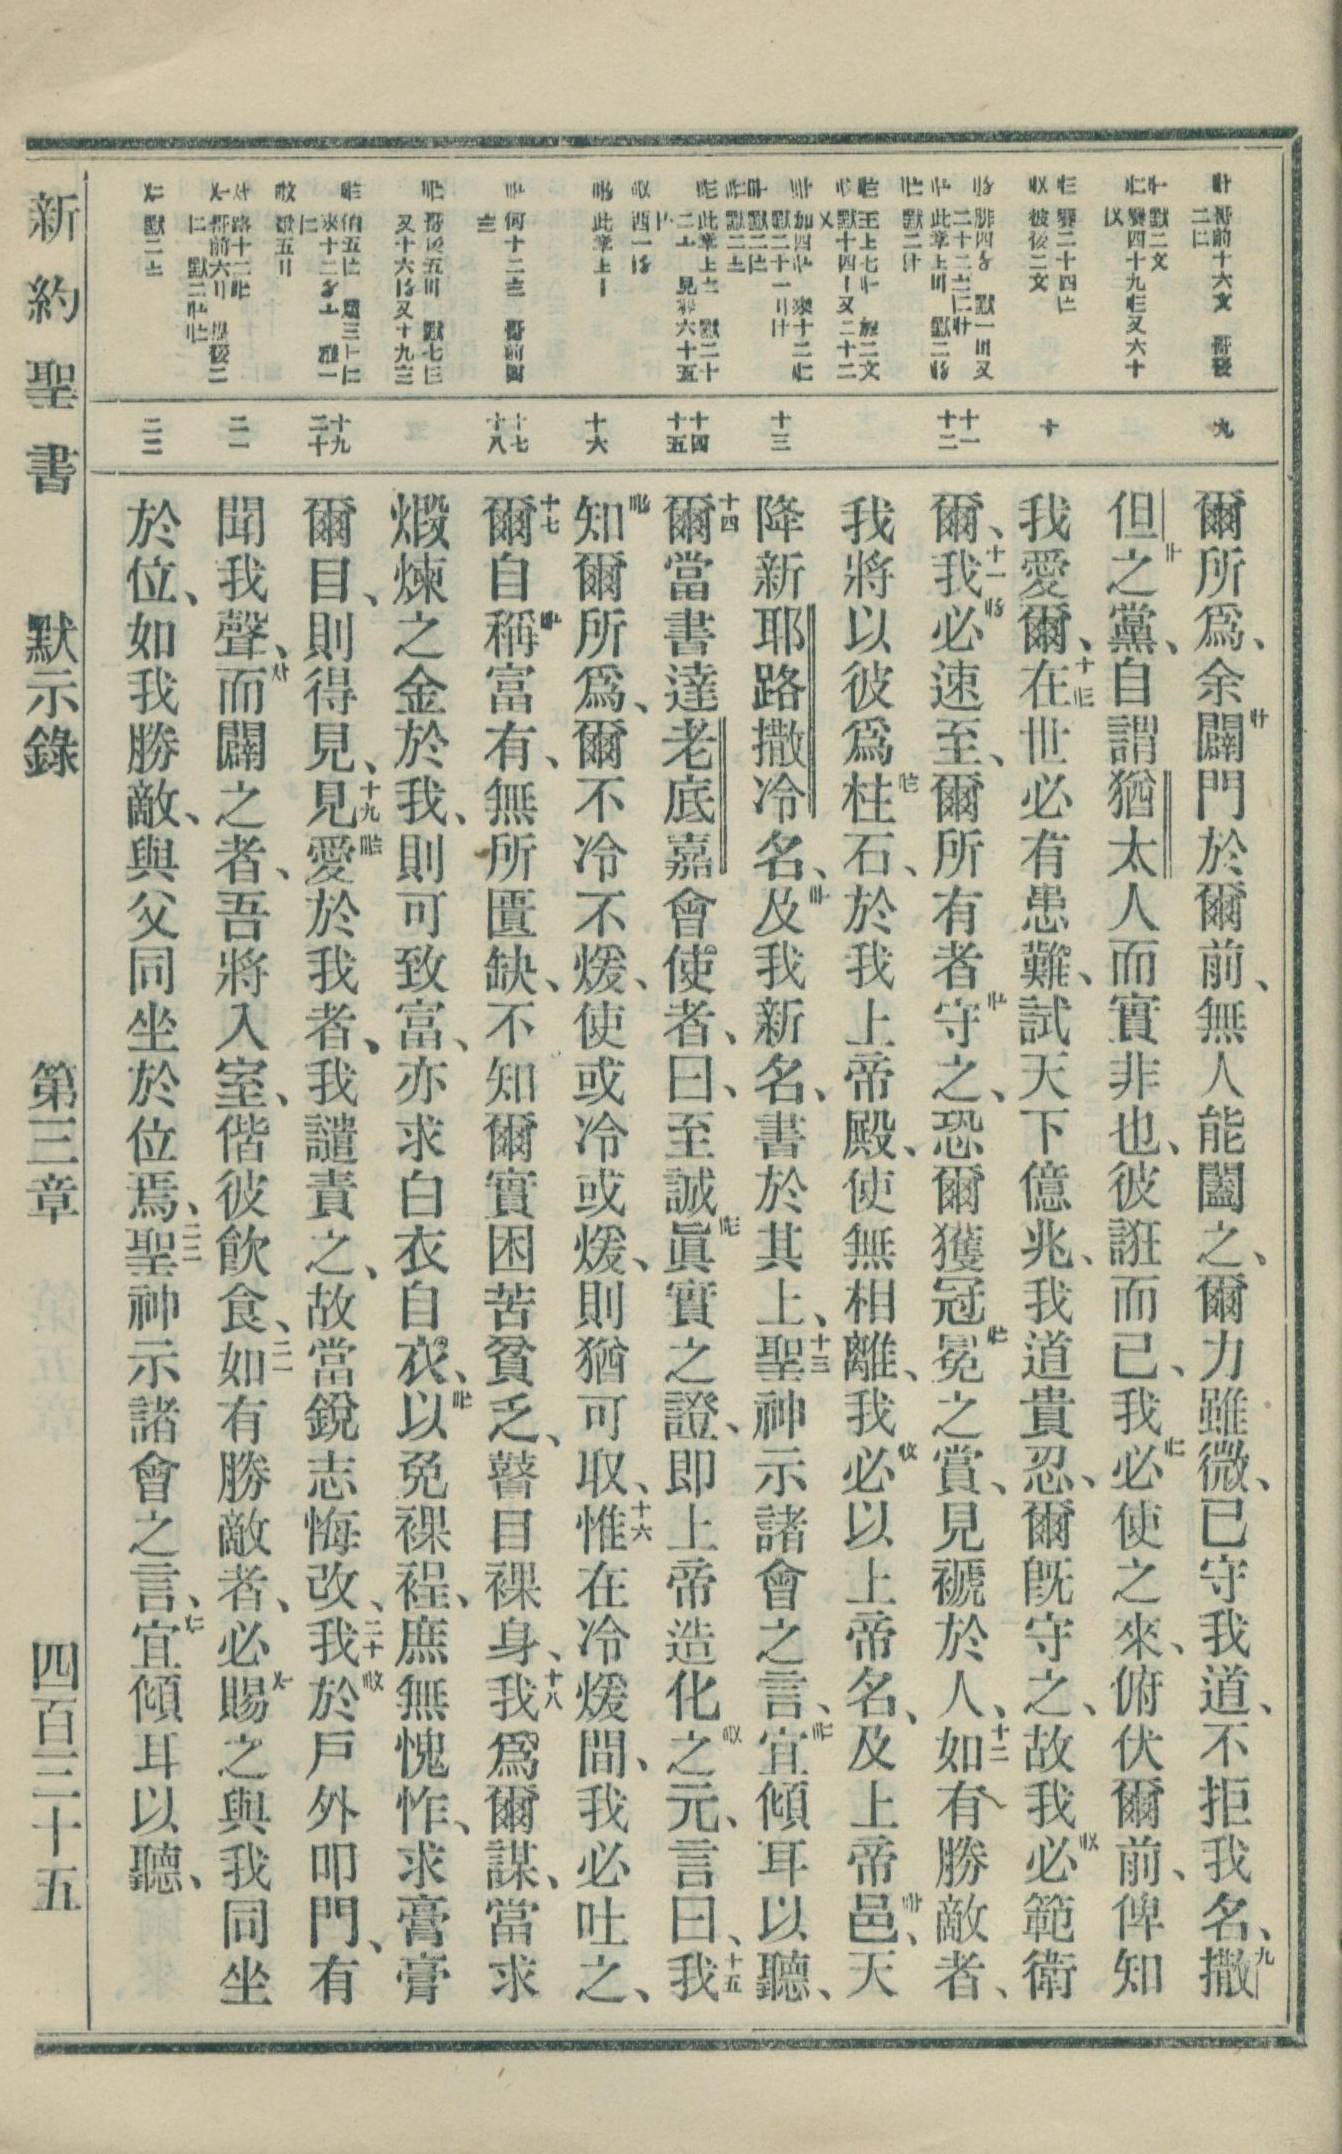 爾所爲、余闢門於爾前、無人能闔之、爾力雖微、已守我道、不拒我名、九撒
但之黨、自謂猶太人而實非也、彼誑而已、我必使之來、俯伏爾前、俾知
我愛爾、十在世必有患難、試天下億兆、我道貴忍、爾旣守之、故我必範衛
爾、十一我必速至、爾所有者守之、恐爾獲冠冕之賞、見褫於人、十二如有勝敵者、
我將以彼爲柱石、於我上帝殿、使無相離、我必以上帝名、及上帝邑、天
降新耶路撒冷名、及我新名、書於其上、十三聖神示諸會之言、宜傾耳以聽、
十四爾當書達老底嘉會使者、曰、至誠眞實之證、即上帝造化之元、言曰、十五我
知爾所爲、爾不冷不煖、使或冷或煖、則猶可取、十六惟在冷煖間、我必吐之、
十七爾自稱富有、無所匱缺、不知爾實困苦貧乏、瞽目裸身、十八我爲爾謀、當求
煅煉之金於我、則可致富、亦求白衣自衣、以免裸裎、庶無愧怍、求膏膏
爾目、則得見、十九見愛於我者、我譴責之、故當銳志悔改、二十我於戶外叩門、有
聞我聲、而闢之者、吾將入室、偕彼飲食、二一如有勝敵者、必賜之與我同坐
於位、如我勝敵、與父同坐於位焉、二二聖神示諸會之言、宜傾耳以聽、
九
十
十一
十二
十三
十四
十五
十六
十七
十八
十九
二十
二一
二二
新約聖書　默示錄　第三章　四百三十五